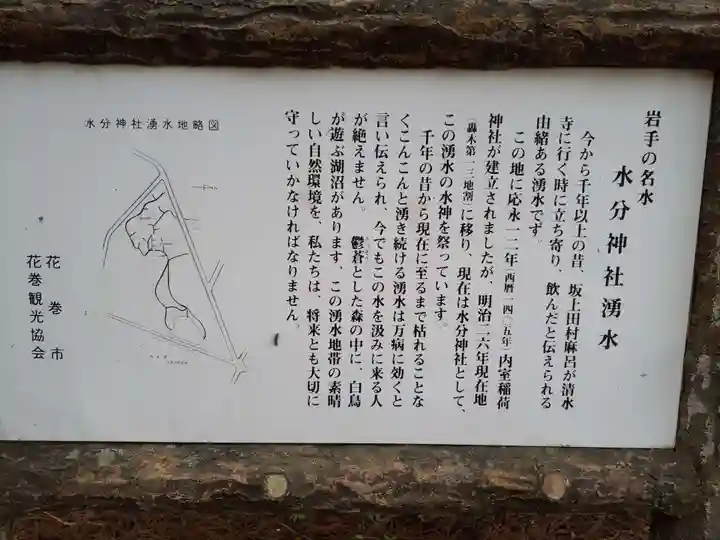 岩手の名水
水分神社湧水
今から千年以上の昔、坂上田村麻呂が清水
寺に行く時に立ち寄り、飲んだと伝えられる
由緒ある湧水です。
この地に応永一二年(西暦一四〇五年)内室稲荷
神社が建立されましたが、明治二六年現在地
(轟木第一三地割)に移り、現在は水分神社として、
この湧水の水神を祭っています。
千年の昔から現在に至るまで枯れることな
くこんこんと湧き続ける湧水は万病に効くと
言い伝えられ、今でもこの水を汲みに来る人
が絶えません。　鬱蒼とした森の中に、白鳥
が遊ぶ湖沼があります、この湧水地帯の素晴
しい自然環境を、私たちは、将来とも大切に
守っていかなければなりません。
水分神社湧水地略図
花巻市
花巻観光協会